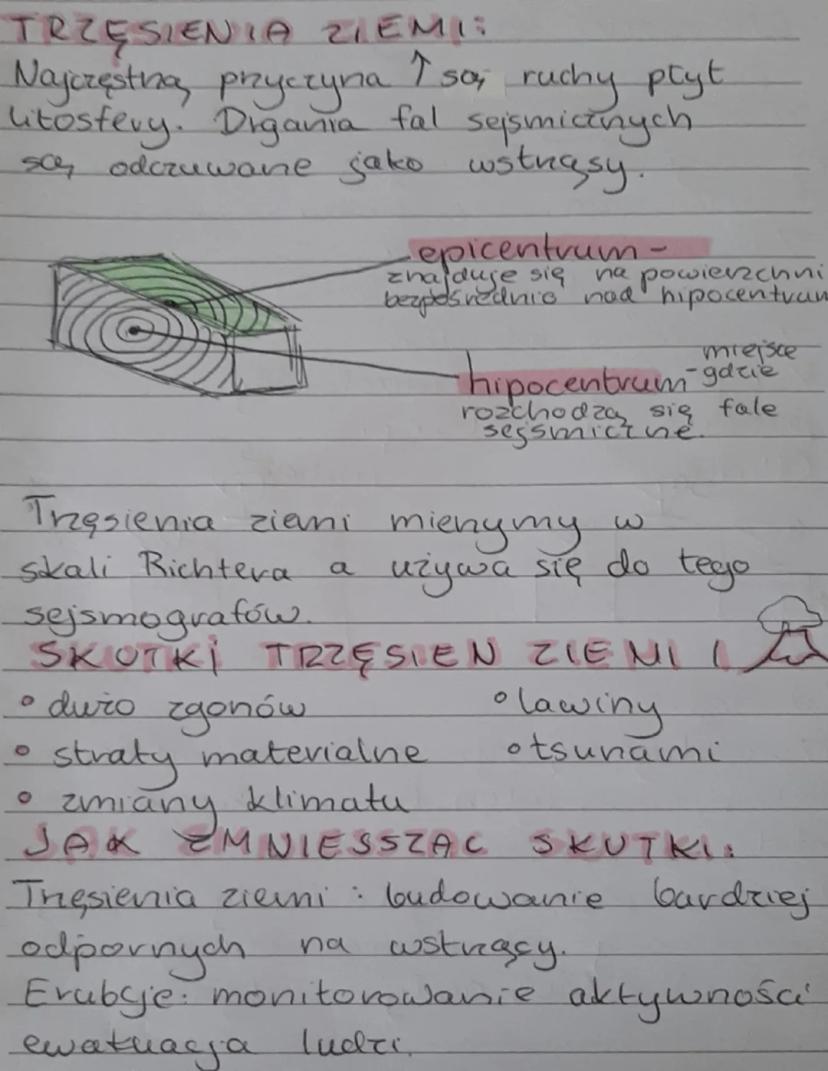 TRZĘSIENIA ZIEMI:
Najczęstrzą przyczyna ↑ są ruchy płyt
litosfery. Drgania fal sejsmicznych
są odczuwane jako wstrząsy.
epicentrum -
znajduje się na powierzchni
bezpośrednio nad hipocentrum
hipocentrum - miejsce gdzie
rozchodzą się fale
sejsmiczne.
Trzęsienia ziemi mierzymy w
skali Richtera a używa się do tego
sejsmografów.
SKUTKI TRZĘSIEN ZIEMI I
• dużo zgonów
• lawiny
• straty materialne
• tsunami
• zmiany klimatu
JAK ZMNIESSZAC SKUTKI:
Trzęsienia ziemi : budowanie bardziej
odpornych na wstrząsy.
Erubcje: monitorowanie aktywności
ewakuacja ludzi.